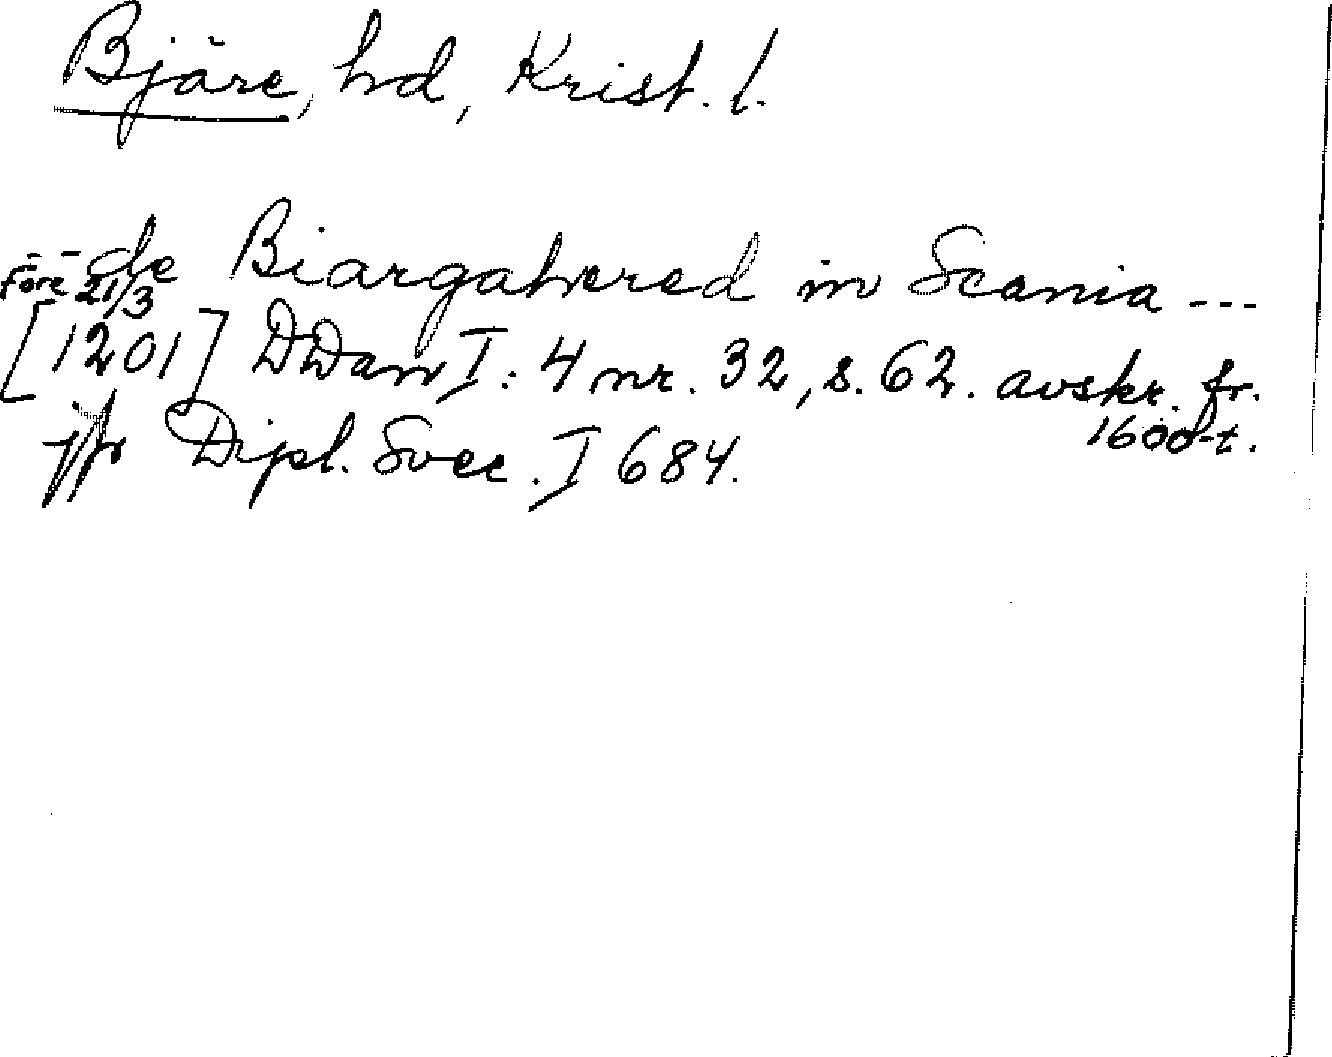 Bjäre, hd, Krist. l.
-- de Biargahered in Scania ---
Före 21/3
[1201] DDan I:4 nr. 32, s. 62. avskr. fr.
1600-t.
jfr Dipl. Svec. I 684.